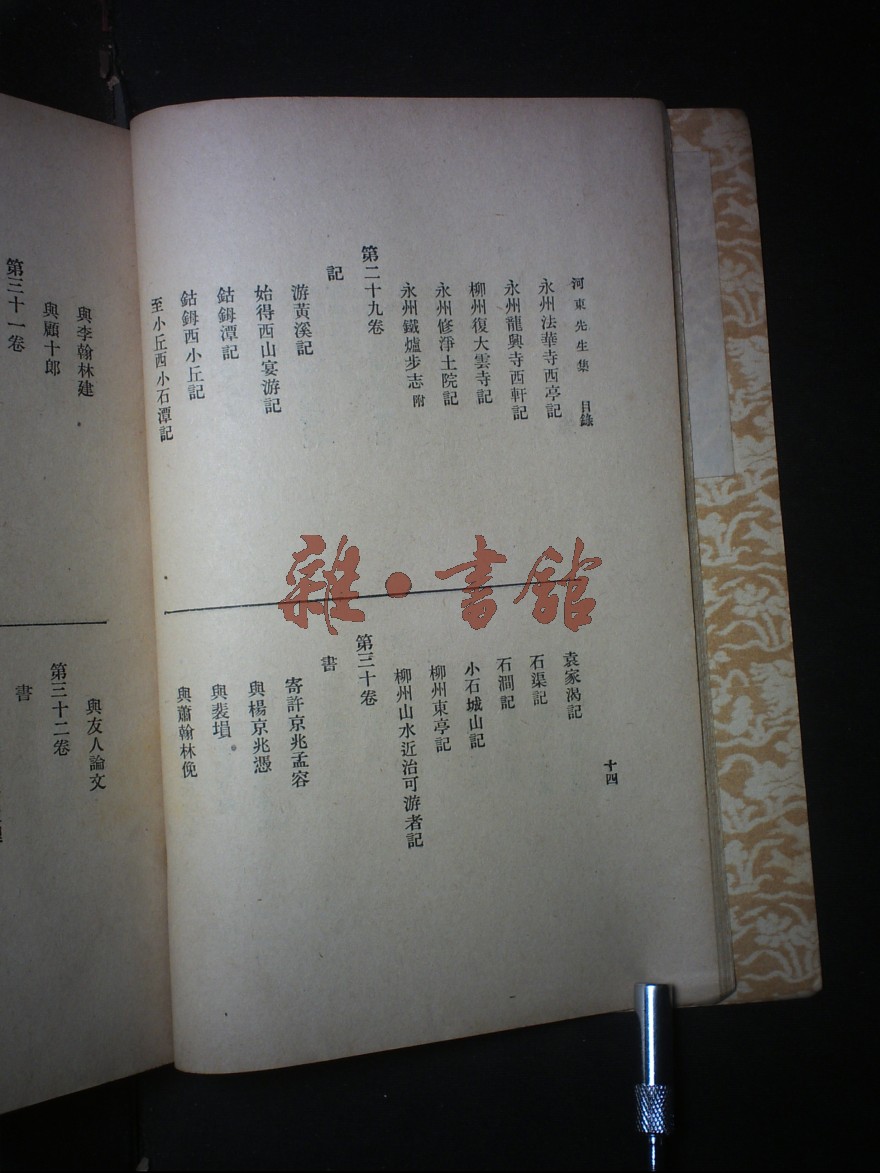 河東先生集 目錄
十四
永州法華寺西亭記
永州龍興寺西軒記
柳州復大雲寺記
永州修淨土院記
永州鐵爐步志 附
第二十九卷
記
游黃溪記
始得西山宴游記
鈷鉧潭記
鈷鉧西小丘記
至小丘西小石潭記
袁家渴記
石渠記
石澗記
小石城山記
柳州東亭記
柳州山水近治可游者記
第三十卷
書
寄許京兆孟容
與楊京兆憑
與裴塤
與蕭翰林俛
與李翰林建
與顧十郎
第三十一卷
與友人論文
第三十二卷
書
雜·書館